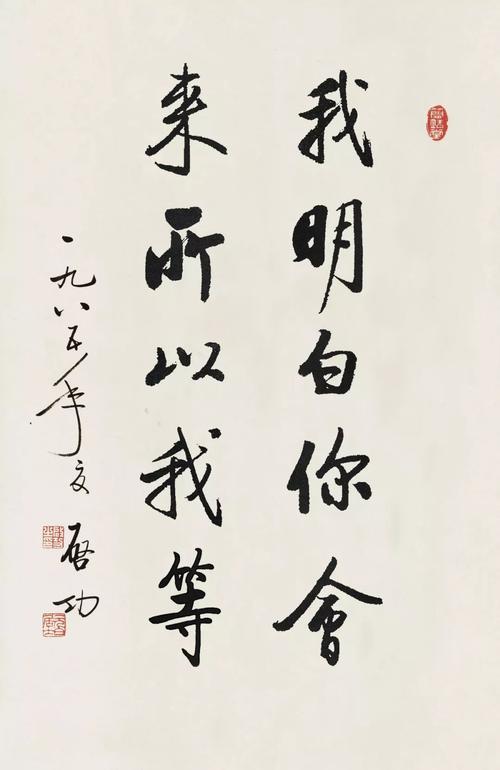 我明白你會
来所以我等
一九八五年夏 啓功